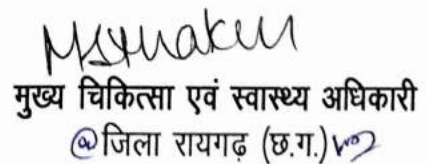 मुख्य चिकित्सा एवं स्वास्थ्य अधिकारी
@जिला रायगढ़ (छ.ग.)